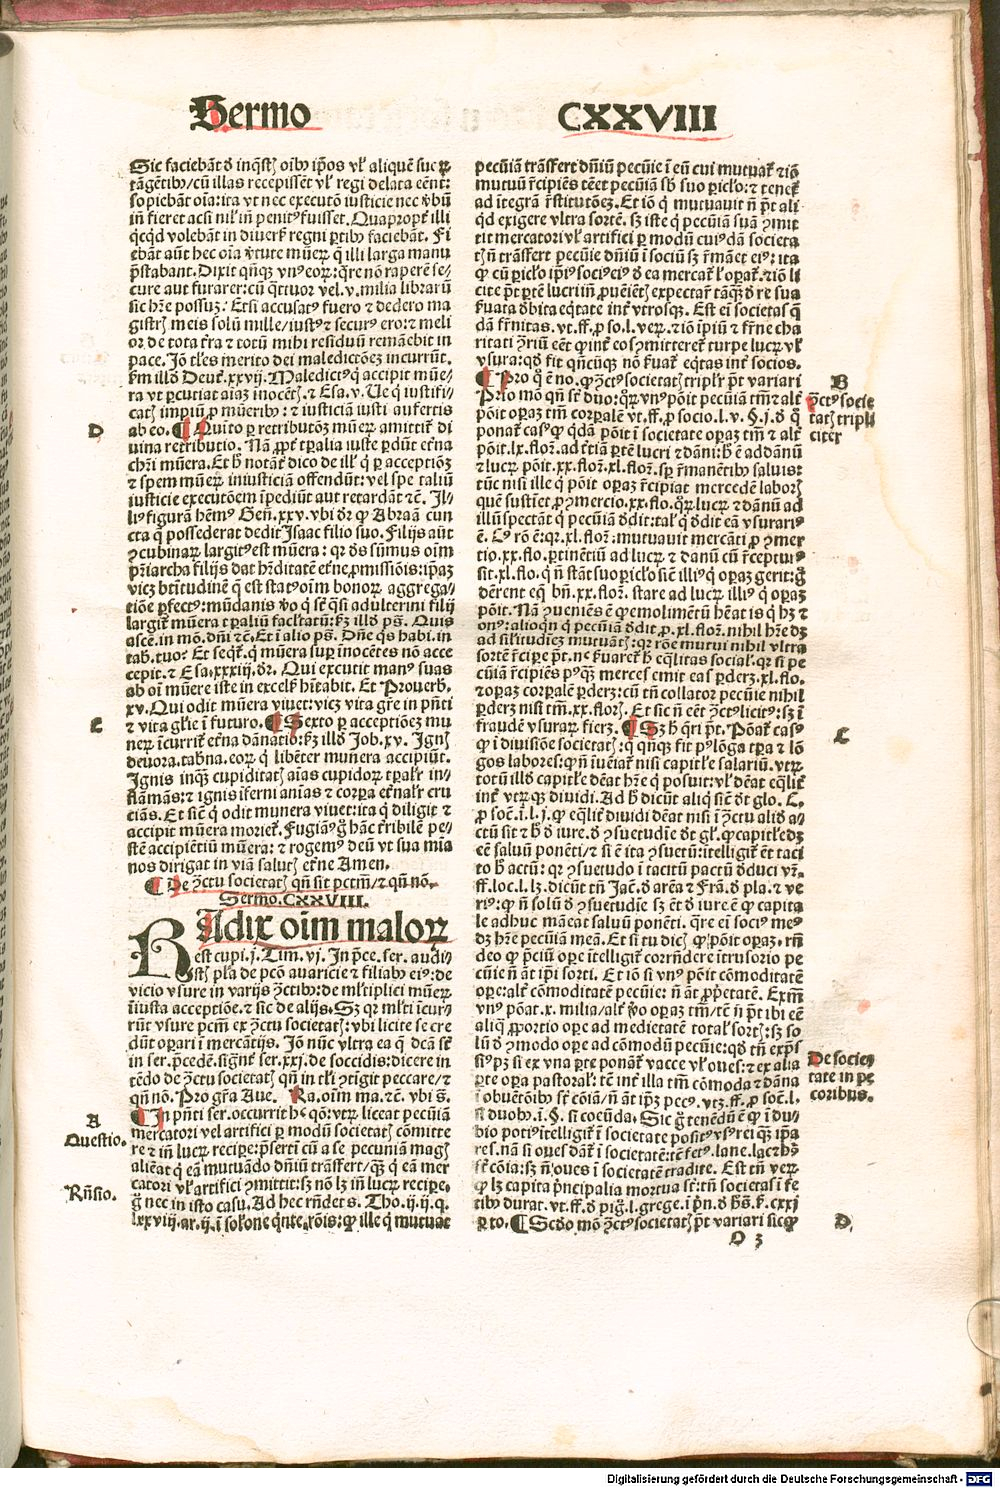 Sermo CXXVIII
Sic faciebāt d̄ inq̄sth oīb ip̄os vl̓ aliquē suc ꝑ
tāgētib/cū illas recepissēt vl̓ regi delata eēnt:
sopiebāt oīa: ita vt nec executō iusticie nec v̓bū
in̄ fieret acsi nil̓ in̄ penitꝰ fuisset. Quapropt̓ illi
qcqd volebāt in diuers̓ regni ꝑtib faciebāt. Fi
ebāt aūt hec oīa v̓tute mūeꝝ q̄ illi larga manu
p̄stabant. Dixit qn̄qꝫ vnꝰ eoꝝ: q̄re nō raperē se/
cure aut furarer: cū q̄ttuor vel .v. milia librarū
sic hr̄e possuꝫ. Etsi accusatꝰ fuero ⁊ dedero ma
gistrꝭ meis solū mille/iustꝰ ⁊ securꝰ ero: ⁊ meli
or de tota tr̄a ⁊ totū mihi residuū remāebit in
pace. Jō tl̓es merito dei maledictōeꝫ incurrūt.
ẜm illd̓ Deut̓. xxvij. Maledictꝰ q̄ accipit mūe/
ra vt ꝑcutiat aīaꝫ inocētꝭ. ⁊ Esa. v. Ue q̄ iustifi/
catꝭ impiū ꝓ mūerib: ⁊ iusticiā iusti aufertis
ab eo. ¶ Quīto ꝑ retributōꝫ mūeꝝ amittit̓ di
uina retributio. Nā ꝓpt̓ tꝑalia iuste ꝑdūt et̓na
D
chꝛi mūera. Et h̓ notāt̓ dico de ill̓ q̄ ꝑ acceptiōꝫ
⁊ spem mūeꝝ iniusticiā offendūt: vel spe taliū
iusticie executōem īpediūt aut retardāt ⁊c̄. Il/
liꝰ figurā hēmꝰ Gen̄. xxv. vbi dr̄ ꝙ Abraā cun
cta q̄ possederat dedit Isaac filio suo. Filijs aūt
ꝯcubinaꝝ largitꝰ est mūera: qꝛ d̓s sūmus oīm
pr̄iarcha filijs dat hr̄ditatē et̓ne ꝓmissiōis: ip̄aꝫ
viꝫ btītudinē q̄ est statꝰ oīm bonoꝝ aggrega/
tiōe ꝑfectꝰ: mūdanis v̓o q̄ sē q̄si adulterini filij
largit̓ mūera tꝑaliū facl̓tatū: ẜꝫ illd̓ ps̄. Quis
ascē. in mō. dn̄i ⁊c̄. Et ī alio ps̄. Dn̄e q̄s habi. in
tab̓. tuo? Et seqt̓. q̄ mūera suꝑ inocētes nō acce
cepit. ⁊ Esa. xxxiij. dr̄. Qui excutit manꝰ suas
ab oī mūere iste in excelẜ hītabit. Et Prouerb̓.
xv. Qui odit mūera viuet: viꝫ vita gr̄e in pn̄ti
⁊ vita gl̓ie ī futuro. ¶ Sexto ꝑ acceptiōeꝫ mu
C
neꝝ īcurrit̓ et̓na dānatio: ẜꝫ illd̓ Job. xv. Ignꝭ
deuora. tab̓na. eoꝝ q̄ libēter munera accipiūt.
Ignis inqꝫ cupiditatꝭ aīas cupidoꝝ tꝑalr̓ in/
flāmās: ⁊ ignis īferni anīas ⁊ corꝑa et̓nalr̓ cru
ciās. Et sic̄ q̄ odit munera viuet: ita q̄ diligit ⁊
accipit mūera moriet̓. Fugiāꝰ g̓ hāc t̓ribilē pe/
stē accipiētiū mūera: ⁊ rogemꝰ deū vt sua mīa
nos dirigat in viā salutꝭ et̓ne Amen.
¶ De ꝯctu societatꝭ qn̄ sit pctm̄/⁊ qn̄ nō.
Sermo. CXXVIII.
RAdix oīm maloꝝ
est cupi. j. Tim. vj. In p̄ce. ser. audi/
stꝭ pl̓a de pctō auaricie ⁊ filiab eiꝰ: de
vicio vsure in varijs ꝯctib: de ml̓tiplici mūeꝝ
īiusta acceptiōe. ⁊ sic de alijs. Sꝫ qꝛ ml̓ti īcur/
rūt vsure pcm̄ ex ꝯctu societatꝭ: vbi licite se cre
dūt opari ī mercātijs. Jō nūc vltra ea q̄ dc̄a st̄
in ser. p̄cedē. signt̓ ser. xxj. de soccidis: dicere in
tēdo de ꝯctu societatꝭ qn̄ in tl̓i ꝯtigit peccare/⁊
qn̄ nō. Pro gr̄a Aue. Ra. oīm ma. ⁊c̄. vbi s̄.
¶ In pn̄ti ser. occurrit hꝰ qō: vtꝝ liceat pecuniā
A
Questio.
mercatori vel artifici ꝑ modū societatꝭ cōmitte
re ⁊ in̄ lucꝝ recipe: p̄serti cū a se pecuniā magꝭ
aliēat q̄ eā mutuādo dn̄iū trāsfert/qꝫ q̄ eā mer
catori vl̓ artifici ꝯmittit: sꝫ nō lꝫ in̄ lucꝝ recipe.
Rn̄sio.
g̓ nec in isto casu. Ad hec rn̄det s. Tho. ij. ij. q.
lxxviij. ar. ij. ī solōne q̄nte rōis: ꝙ ille q̄ mutuat
pecūiā trāsfert dn̄iū pecūie ī eū cui mutuat̓ ⁊ iō
mutuū rc̄ipiēs tēet pecūiā sb̓ suo ꝑicl̓o: ⁊ tenet̓
ad ītegrā rēstitutōeꝫ. Et iō q̄ mutuauit n̄ pt̄ ali
qd exigere vltra sortē. Sꝫ iste q̄ pecūiā suā ꝯmit
tit mercatori vl̓ artifici ꝑ modū cuiꝰdā societa
tꝭ n̄ trāsfert pecūie dn̄iū ī sociū sꝫ rēmāet eiꝰ: ita
ꝙ cū ꝑicl̓o ip̄iꝰ sociꝰ eiꝰ d̓ ea mercat̓ l̓ oꝑat̓. ⁊ iō li
cite pt̄ ꝑtē lucri in̄ ꝓueiētꝭ expectar̓ tāqꝫ d̓ re sua
ẜuata d̓bita eqtate int̓ vtrosqꝫ. Est ei societas q̄
dā fr̄nitas. vt. ff. ꝓ so. l. veꝝ. ⁊ iō ip̄iū ⁊ fr̄ne cha
ritati ꝯriū eēt ꝙ int̓ eos ꝯmitteret̓ turpe lucꝝ vl̓
vsura: qd̓ fit qn̄cūqꝫ nō ẜuat̓ eqtas int̓ socios.
B
ꝯctꝰ socie
tatꝭ tripli
citer
¶ Pro q̄ ē no. ꝙ ꝯctꝰ societatꝭ triplr̓ pt̄ variari
P̓mo mō qn̄ st̄ duo: qꝝ vnꝰ pōit pecūiā tm̄ ⁊ alt̓
pōit oꝑaꝫ tm̄ corꝑalē vt. ff. ꝓ socio. l. v. §. j. d̓ q̄
ponat̓ casꝰ ꝙ q̄dā pōit ī societate oꝑaꝫ tm̄ ⁊ alt̓
pōit. lx. floꝝ. ad t̓tiā ꝑtē lucri ⁊ dāni: h̓ ē ad dānū
⁊ lucꝝ pōit. xx. floꝝ. xl. floꝝ. sꝑ rēmanētib saluis:
tūc nisi ille q̄ pōit oꝑaꝫ rēcipiat mercedē laborꝭ
quē sustīet ꝓ ꝯmercio. xx. flo. qꝝ lucꝝ ⁊ dānū ad
illū spectāt q̄ pecūiā d̓dit: tal̓ q̄ d̓dit eā vsurariꝰ
ē. Cꝰ rō ē: qꝛ. xl. floꝝ. mutuauit mercāti ꝓ ꝯmer
tio. xx. flo. ꝑtinētiū ad lucꝝ ⁊ danū cū rēcepturꝰ
sit. xl. flo. q̄ n̄ stāt suo ꝑicl̓o sic̄ illiꝰ q̄ oꝑaꝫ gerit: g̓
d̓erent eq̄ bn̄. xx. floꝝ. stare ad lucꝝ illiꝰ q̄ oꝑaꝫ
pōit. Nā ꝯueniēs ē ꝙ emolimētū hēat is q̄ hꝫ ⁊
onꝰ: alioqn̄ q̄ pecūiā d̓dit. ꝓ. xl. floꝝ. nihil hr̄e dꝫ
ad sil̓itudīeꝫ mutuātꝭ: qꝛ rōne mutui nihil vltra
sortē rēcipe pt̄. nec ẜuaret̓ h̓ eq̄litas social̓. qꝛ si pe
cūiā rc̄ipiēs pꝰqꝫ merces emit eas ꝑderꝫ. xl. flo.
⁊ oꝑaꝫ corꝑalē ꝑderꝫ: cū tn̄ collator pecūie nihil
ꝑderꝫ nisi tm̄. xx. florꝭ. Et sic n̄ eēt ꝯctꝰ licitꝰ: sꝫ ī
fraudē vsuraꝝ fierꝫ. ¶ Sꝫ h̓ qri pt̄. Pōat̓ casꝰ
C
ꝙ ī diuisiōe societatꝭ: q̄ qn̄qꝫ fit pꝰ lōga tꝑa ⁊ lō
gos labores: ꝙ n̄ īueiat̓ nisi capitl̓e salariū. vtꝝ
totū illd̓ capitl̓e dēat hr̄e q̄ posuit: vl̓ dēat eq̄lit̓
int̓ vtꝝqꝫ diuidi. Ad h̓ dicūt aliq̄ sic̄ d̓t glo. C.
ꝓ soc̄. l. l. j. ꝙ eq̄lit̓ diuidi dēat nisi ī ꝯctu aliō a/
ctū sit ⁊ h̓ d̓ iure. d̓ ꝯsuetudīe d̓t gl̓. ꝙ capitl̓e dꝫ
eē saluū ponēti/⁊ si ē ita ꝯsuetū: itelligit̓ ēt taci
to h̓ actū: qꝛ ꝯsuetudo ī tacitū pactū d̓duci vr̄.
ff. loc. l. lꝫ. dicūt tn̄ Jac̄. d̓ arēa ⁊ Frā. d̓ pla. ⁊ ve
riꝰ: ꝙ n̄ solū d̓ ꝯsuetudīe sꝫ ēt d̓ iure ē ꝙ capita
le adhuc māeat saluū ponēti. q̄re ei sociꝰ meꝰ
dꝫ hr̄e pecūiā meā. Et si tu dicꝭ ꝙ pōit oꝑaꝫ. rn̄
deo ꝙ p̄ciū oꝑe ītelligit̓ corrn̄dere ītrusorio pe
cūie n̄ āt ip̄i sorti. Et iō si vnꝰ pōit cōmoditatē
oꝑe: alt̓ cōmoditatē pecūie: n̄ āt ꝓp̓etatē. Exm̄
vnꝰ pōat. x. milia/ alt̓ v̓o oꝑaꝫ tm̄/tē n̄ pt̄ ibi eē
aliq̄ ꝓportio oꝑe ad medietatē total̓ sortꝭ: sꝫ so
lū d̓ ꝯmodo oꝑe ad cōmodū pecūie: qd̓ tn̄ exp̄s
De socie/
tate in pe
coribus.
siꝰ pꝫ si ex vna ꝑte ponāt̓ vacce vl̓ oues: ⁊ ex alia
ꝑte oꝑa pastoral̓: tē int̓ illa tm̄ cōmoda ⁊ dāna
ī obuētōib st̄ cōia/n̄ āt ip̄ꝫ pecꝰ. vtꝫ. ff. ꝓ soc̄. l.
si duob. ī. §. si coeūda. Sic g̓ tenēdū ē ꝙ ī du/
bio potiꝰ ītelligit̓ ī societate positꝰ vsꝰ rei qꝫ ip̄a
res. nā si oues dāt̓ ī societatē: tē fetꝰ. lane. lac ⁊ hꝰ
st̄ cōia: sꝫ n̄ oues ī societatē tradite. Est tn̄ veꝝ
ꝙ lꝫ capita p̄ncipalia mortua st̄: tn̄ societas ī fe
tib durat. vt. ff. d̓ pig̓. l. grege. ī p̄n. d̓ h̓ s̄. ẜ. cxxj
ꝑ to. ¶ Scd̓o mō ꝯctꝰ societatꝭ pt̄ variari sic ꝙ
D
O 3
Digitalisierung gefördert durch die Deutsche Forschungsgemeinschaft - DFG